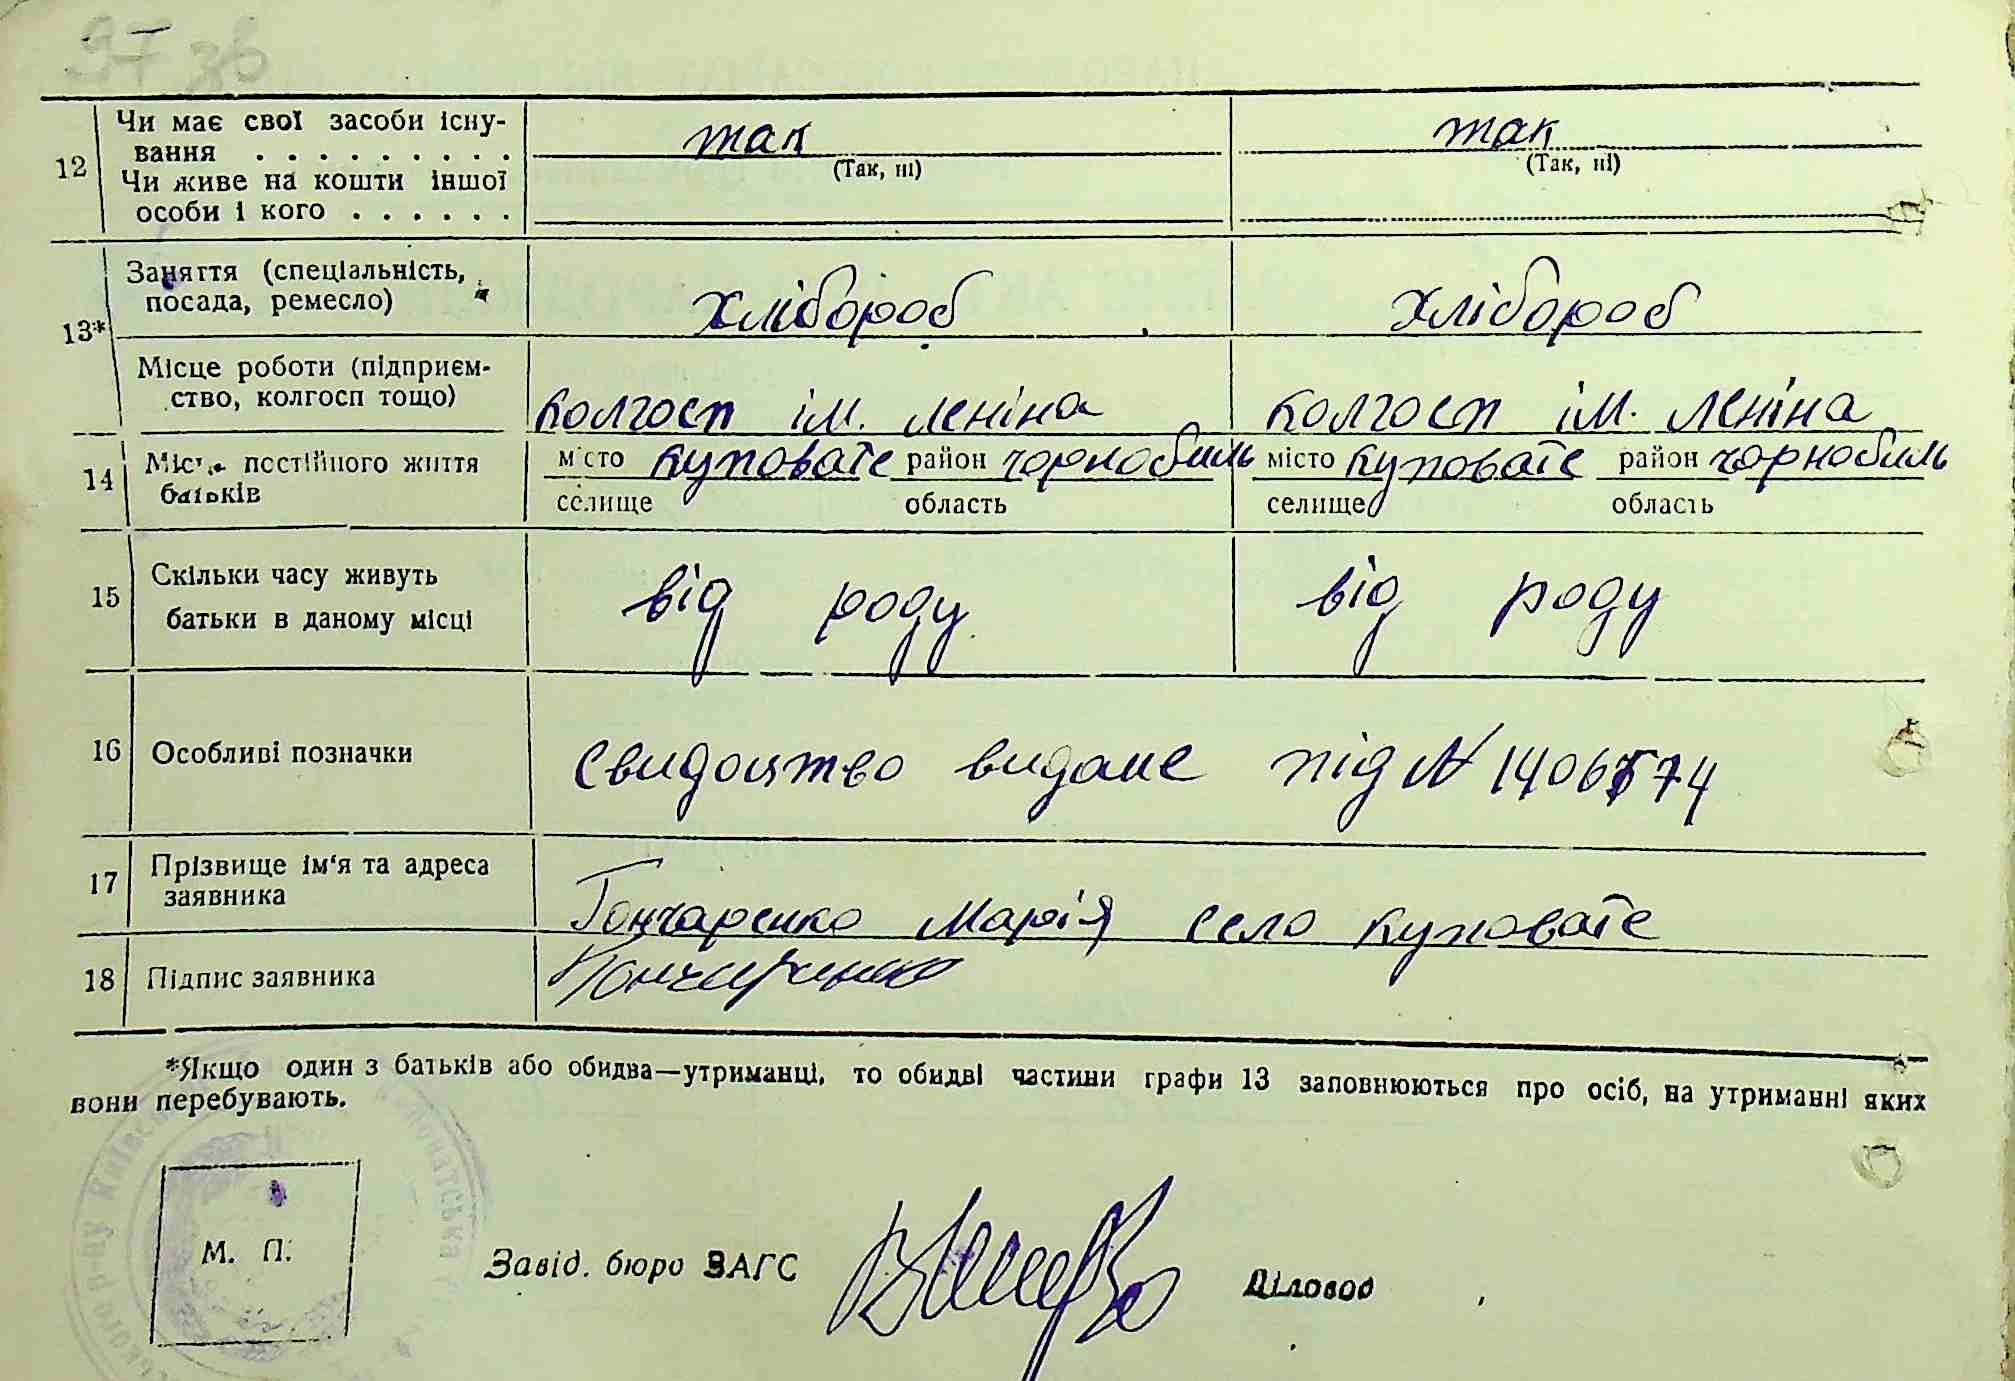 97 зв
12 Чи має свої засоби існу- так так
вання . . . . . . . . . (Так, ні) (Так, ні)
Чи живе на кошти іншої
особи і кого . . . . . .
Заняття (спеціальність,
посада, ремесло) хлібороб хлібороб
13*
Місце роботи (підприєм-
ство, колгосп тощо) колгосп ім. леніна колгосп ім. леніна
14 Місце постійного життя місто куповате район чорнобиль місто куповате район чорнобиль
батьків селище область селище область
15 Скільки часу живуть від роду від роду
батьки в даному місці
16 Особливі позначки свидоцтво видане під №
17 Прізвище ім'я та адреса
заявника Гончаренко Марія село куповате
18 Підпис заявника Гончаренко
*Якщо один з батьків або обидва—утриманці, то обидві частини графи 13 заповнюються про осіб, на утриманні яких
вони перебувають.
М. П.
Завід. бюро ЗАГС Діловод